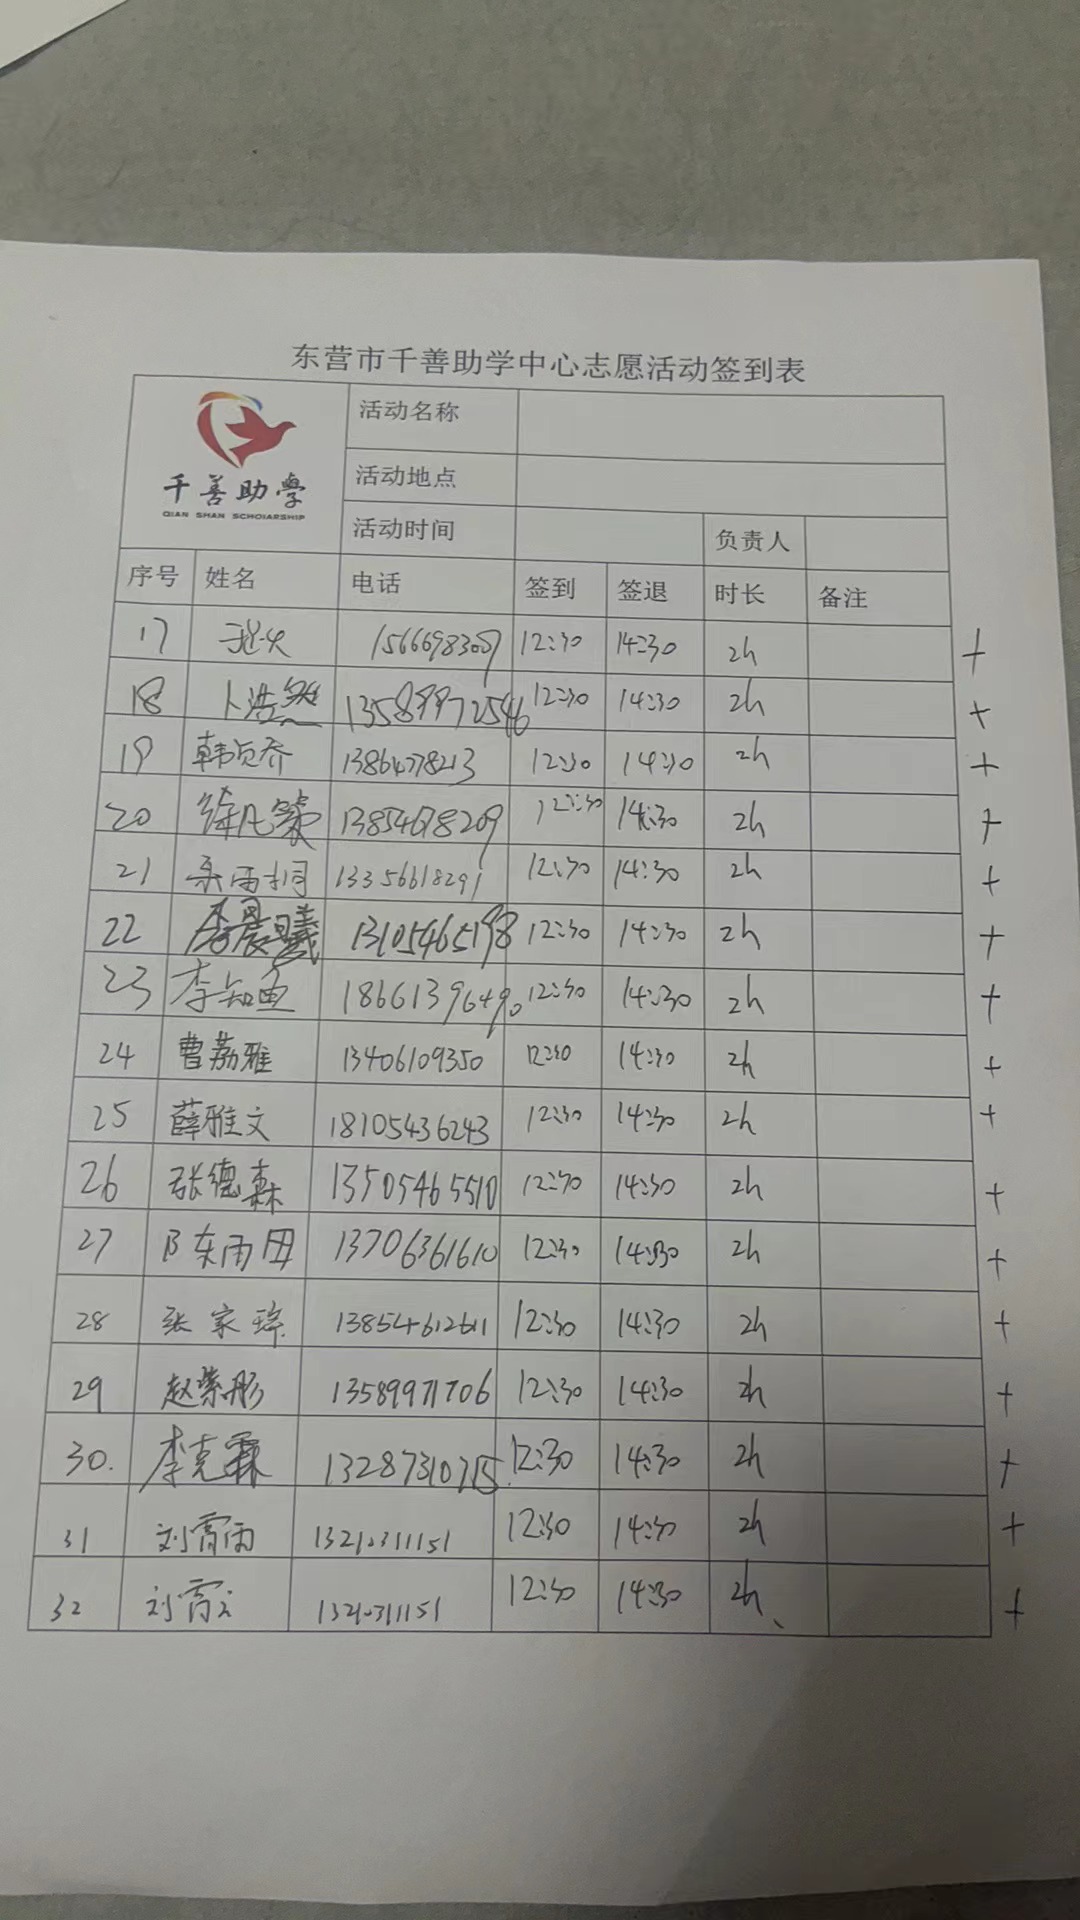 东营市千善助学中心志愿活动签到表
千善助学
QIAN SHAN SCHOIARSHIP
活动名称
活动地点
活动时间 负责人
序号 姓名 电话 签到 签退 时长 备注
17 12:30 14:30 2h +
18 卜浩然 13589972546 12:30 14:30 2h +
19 韩贞乔 13864778213 12:30 14:30 2h +
20 徐凡 13854678209 12:30 14:30 2h +
21 雨桐 13356618291 12:30 14:30 2h +
22 李晨曦 13105465198 12:30 14:30 2h +
23 李知鱼 18661396490 12:30 14:30 2h +
24 曹荔雅 13406109350 12:30 14:30 2h +
25 薛雅文 18105436243 12:30 14:30 2h +
26 张德森 13505465510 12:30 14:30 2h +
27 陈雨田 13706361610 12:30 14:30 2h +
28 张家 13854612611 12:30 14:30 2h +
29 赵紫彤 13589971706 12:30 14:30 2h +
30. 李克霖 13287310715 12:30 14:30 2h +
31 刘霄雨 13210311151 12:30 14:30 2h +
32 刘霄云 13210311151 12:30 14:30 2h、 +